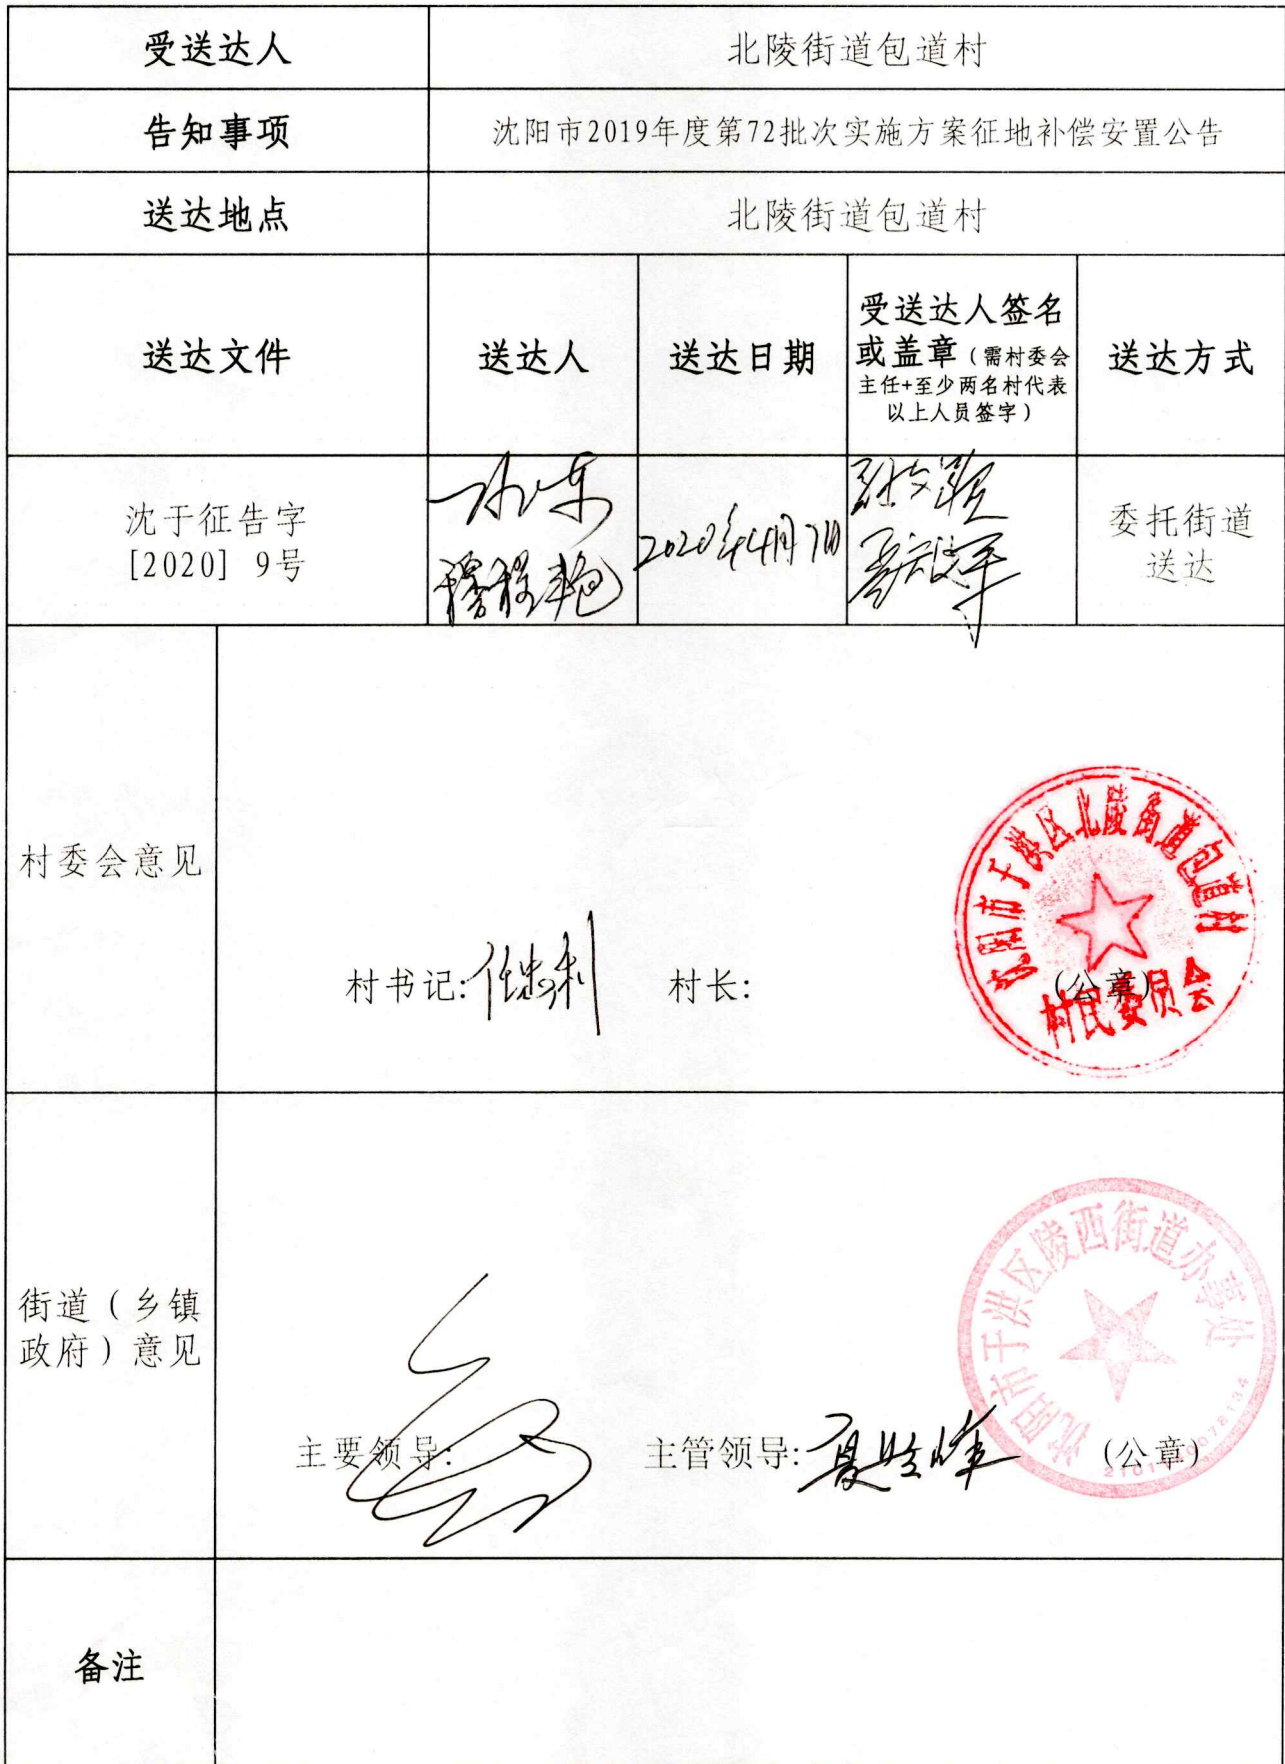 受送达人
北陵街道包道村
告知事项
沈阳市2019年度第72批次实施方案征地补偿安置公告
送达地点
北陵街道包道村
送达文件
送达人
送达日期
受送达人签名
或盖章（需村委会
主任+至少两名村代表
以上人员签字）
送达方式
沈于征告字
[2020] 9号
2020年4月7日
委托街道
送达
村委会意见
村书记:
村长:
(公章)
沈阳市于洪区北陵街道包道村
村民委员会
街道（乡镇
政府）意见
主要领导:
主管领导:
(公章)
沈阳市于洪区陵西街道办事处
备注